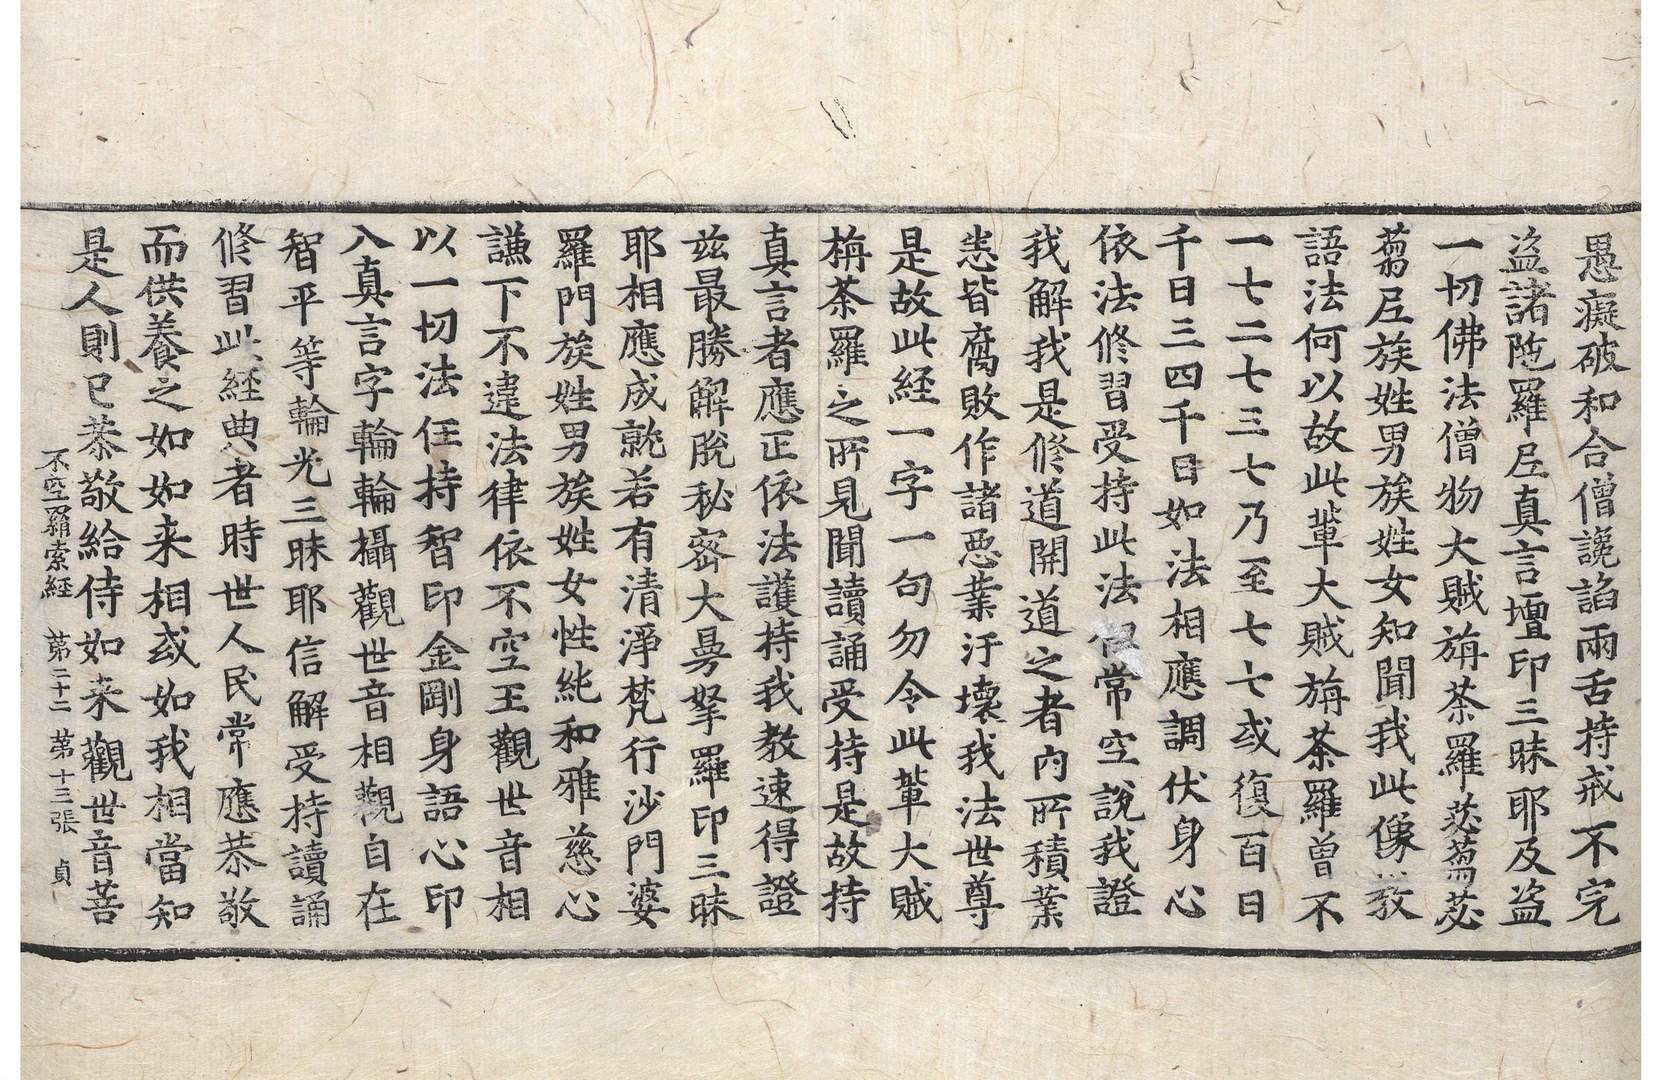 愚癡破和合僧讒謟兩舌持戒不完
盜諸陁羅尼真言壇印三昧耶及盜
一切佛法僧物大賊旃荼羅苾蒭苾
蒭尼族姓男族姓女知聞我此像教
語法何以故此輩大賊旃荼羅曾不
一七二七三七乃至七七或復百日
千日三四千日如法相應調伏身心
依法修習受持此法但常空說我證
我解我是修道開道之者内所積業
悉皆腐敗作諸惡業汙壞我法世尊
是故此経一字一句勿令此輩大賊
旃荼羅之所見聞讀誦受持是故持
真言者應正依法護持我教速得證
玆最勝解脫秘密大曼拏羅印三昧
耶相應成就若有清淨梵行沙門婆
羅門族姓男族姓女性純和雅慈心
謙下不違法律依不空王觀世音相
以一切法任持智印金剛身語心印
入真言字輪輪攝觀世音相觀自在
智平等輪光三昧耶信解受持讀誦
修習此経典者時世人民常應恭敬
而供養之如如来相或如我相當知
是人則已恭敬給侍如来觀世音菩
不空羂索経 第二十二 第十三張 貞